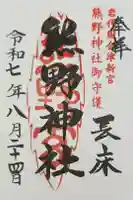 奉拝
会津新宮
熊野神社御守護
長床
熊野神社
令和七年八月二十四日